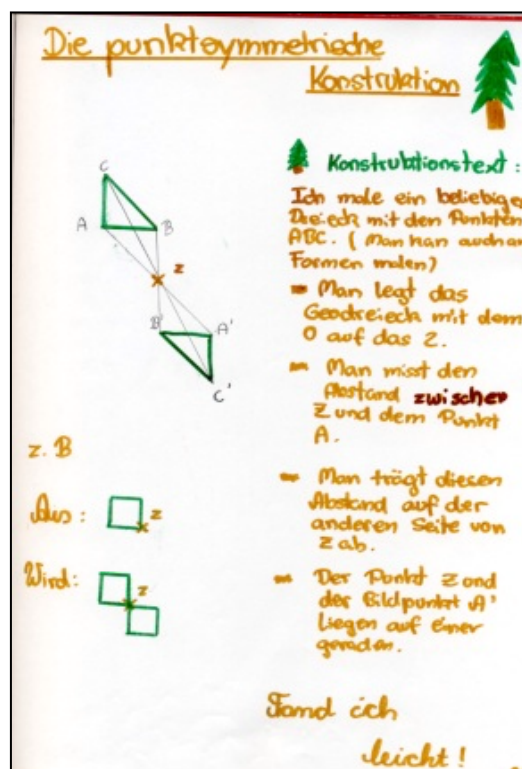 Die punktsymmetrische
Konstruktion
C
A
B
Z
B'
A'
C'
Konstruktionstext:
Ich male ein beliebiges
Dreieck mit den Punkten
ABC. (Man kan auch an
Formen malen)
- Man legt das
Geodreieck mit dem
0 auf das Z.
- Man misst den
Abstand zwischen
Z und dem Punkt
A.
- Man trägt diesen
Abstand auf der
anderen Seite von
Z ab.
- Der Punkt Z und
der Bildpunkt A'
Liegen auf einer
geraden.
z. B
Aus:
Z
Wird:
Z
Fand ich
leicht!